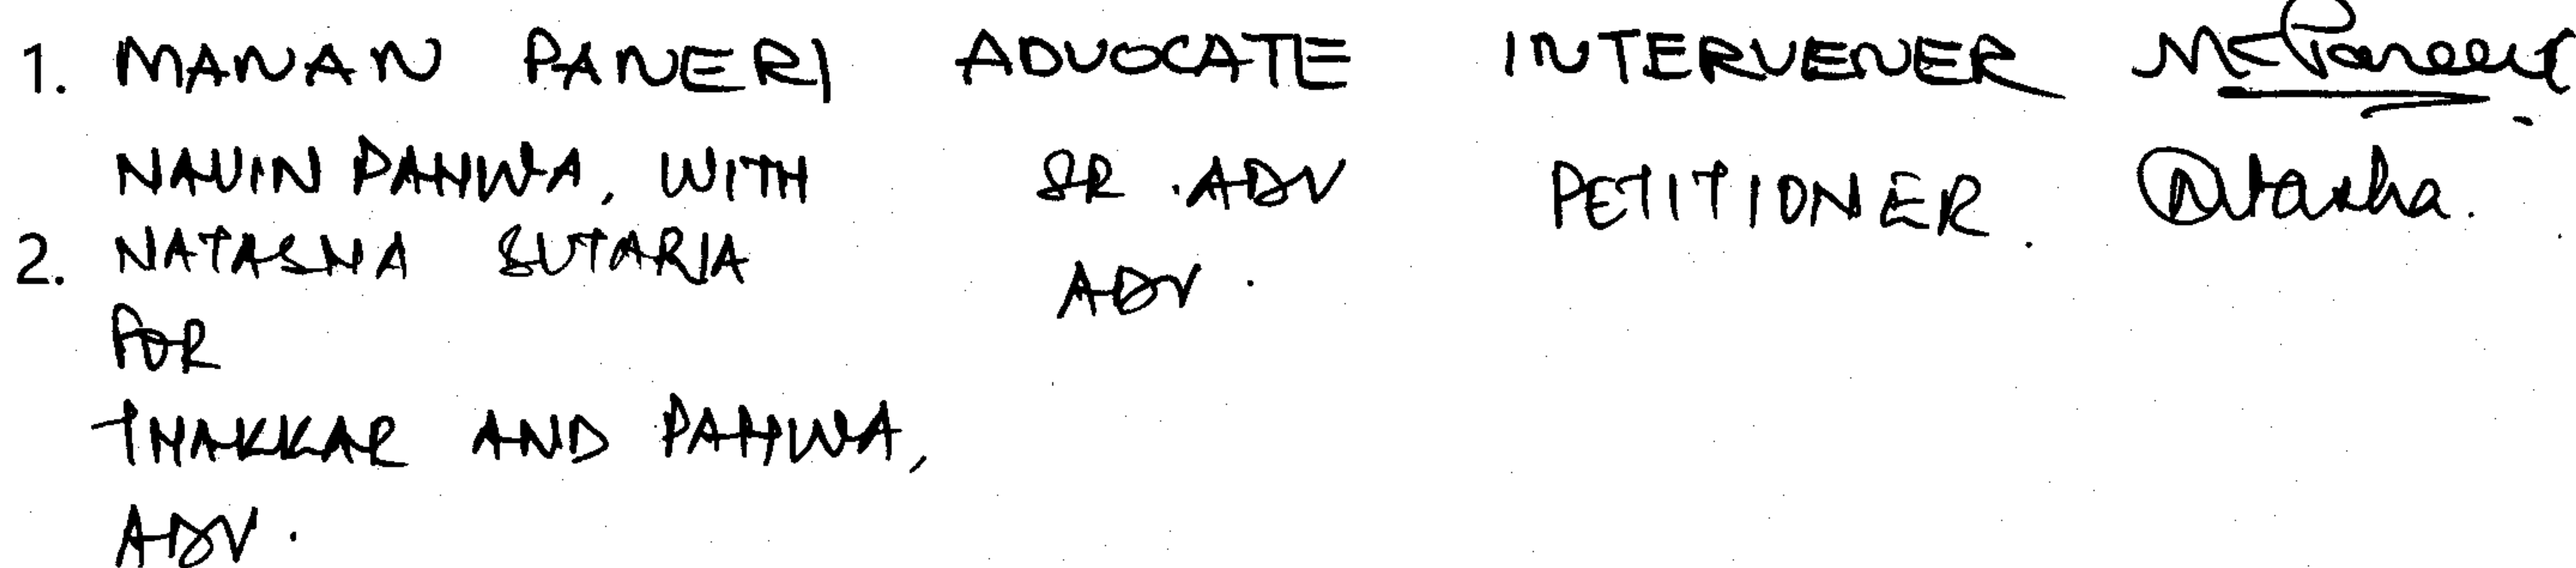 1. MANAN PANERI ADVOCATE INTERVENER M C Paneri
NAVIN PAHWA, WITH SR. ADV PETITIONER. Natasha.
2. NATASHA SUTARIA ADV.
FOR
THAKKAR AND PAHWA,
ADV.